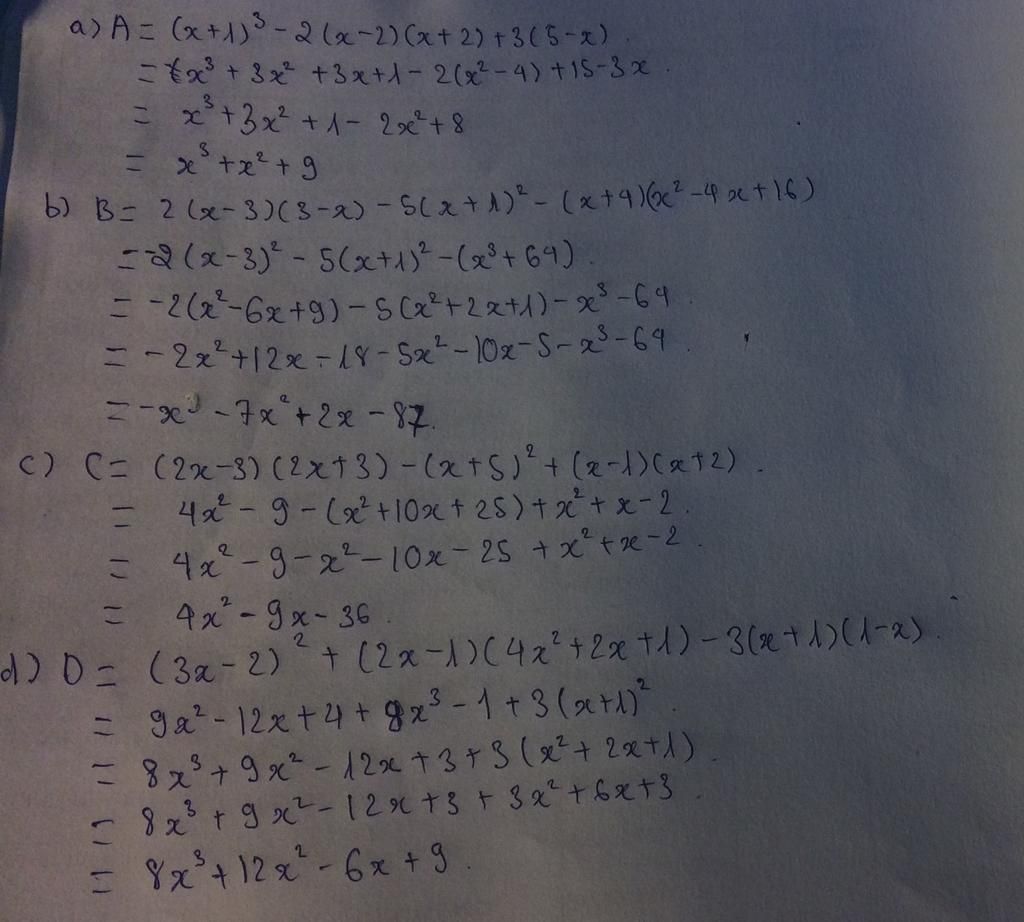 a) A = (x+1)³ - 2(x-2)(x+2) + 3(5-x).
= x³ + 3x² + 3x + 1 - 2(x² - 4) + 15 - 3x.
= x³ + 3x² + 1 - 2x² + 8
= x³ + x² + 9
b) B = 2(x-3)(3-x) - 5(x+1)² - (x+4)(x² - 4x + 16)
= -2(x-3)² - 5(x+1)² - (x³ + 64).
= -2(x² - 6x + 9) - 5(x² + 2x + 1) - x³ - 64.
= -2x² + 12x - 18 - 5x² - 10x - 5 - x³ - 64.
= -x³ - 7x² + 2x - 87.
c) C = (2x-3)(2x+3) - (x+5)² + (x-1)(x+2).
= 4x² - 9 - (x² + 10x + 25) + x² + x - 2.
= 4x² - 9 - x² - 10x - 25 + x² + x - 2.
= 4x² - 9x - 36.
d) D = (3x-2)² + (2x-1)(4x² + 2x + 1) - 3(x+1)(1-x).
= 9x² - 12x + 4 + 8x³ - 1 + 3(x+1)².
= 8x³ + 9x² - 12x + 3 + 3(x² + 2x + 1).
= 8x³ + 9x² - 12x + 3 + 3x² + 6x + 3.
= 8x³ + 12x² - 6x + 9.